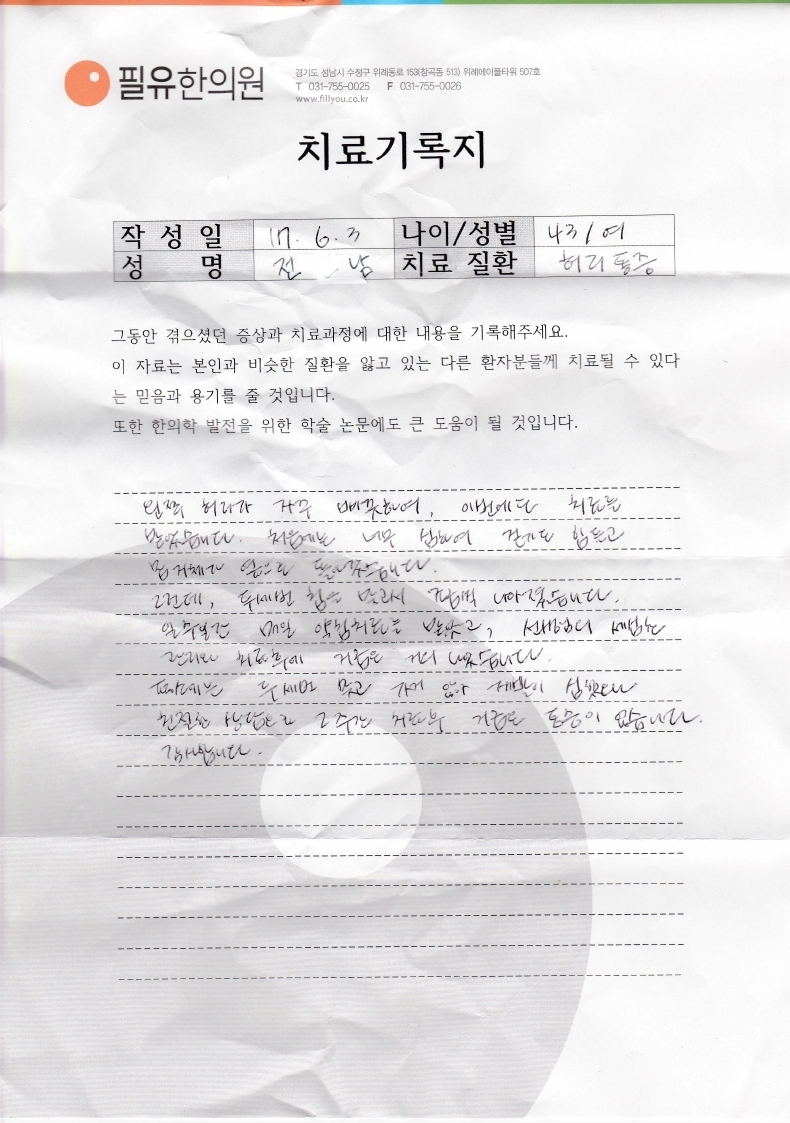 필유한의원
경기도 성남시 수정구 위례동로 153(창곡동 513) 위례에이플타워 507호
T 031-755-0025 F 031-755-0026
www.fillyou.co.kr
치료기록지
작성일 17. 6. 3 나이/성별 43/여
성명 전 남 치료 질환 허리통증
그동안 겪으셨던 증상과 치료과정에 대한 내용을 기록해주세요.
이 자료는 본인과 비슷한 질환을 앓고 있는 다른 환자분들께 치료될 수 있다
는 믿음과 용기를 줄 것입니다.
또한 한의학 발전을 위한 학술 논문에도 큰 도움이 될 것입니다.
왼쪽 허리가 자주 삐끗하여, 이번에도 치료를
받았습니다. 처음에는 너무 심하여 걷기도 힘들고
몸 자체가 옆으로 틀어졌습니다.
그런데, 두세번 침을 맞고서 나아졌습니다.
일주일간 매일 약침치료를 받았고, 선생님의 세심한
치료후에 지금은 거의 나았습니다.
두세번 맞고 가지 않아 재발이 심했으나
친절한 상담과 2주간 치료후 지금은 통증이 없습니다.
감사합니다.